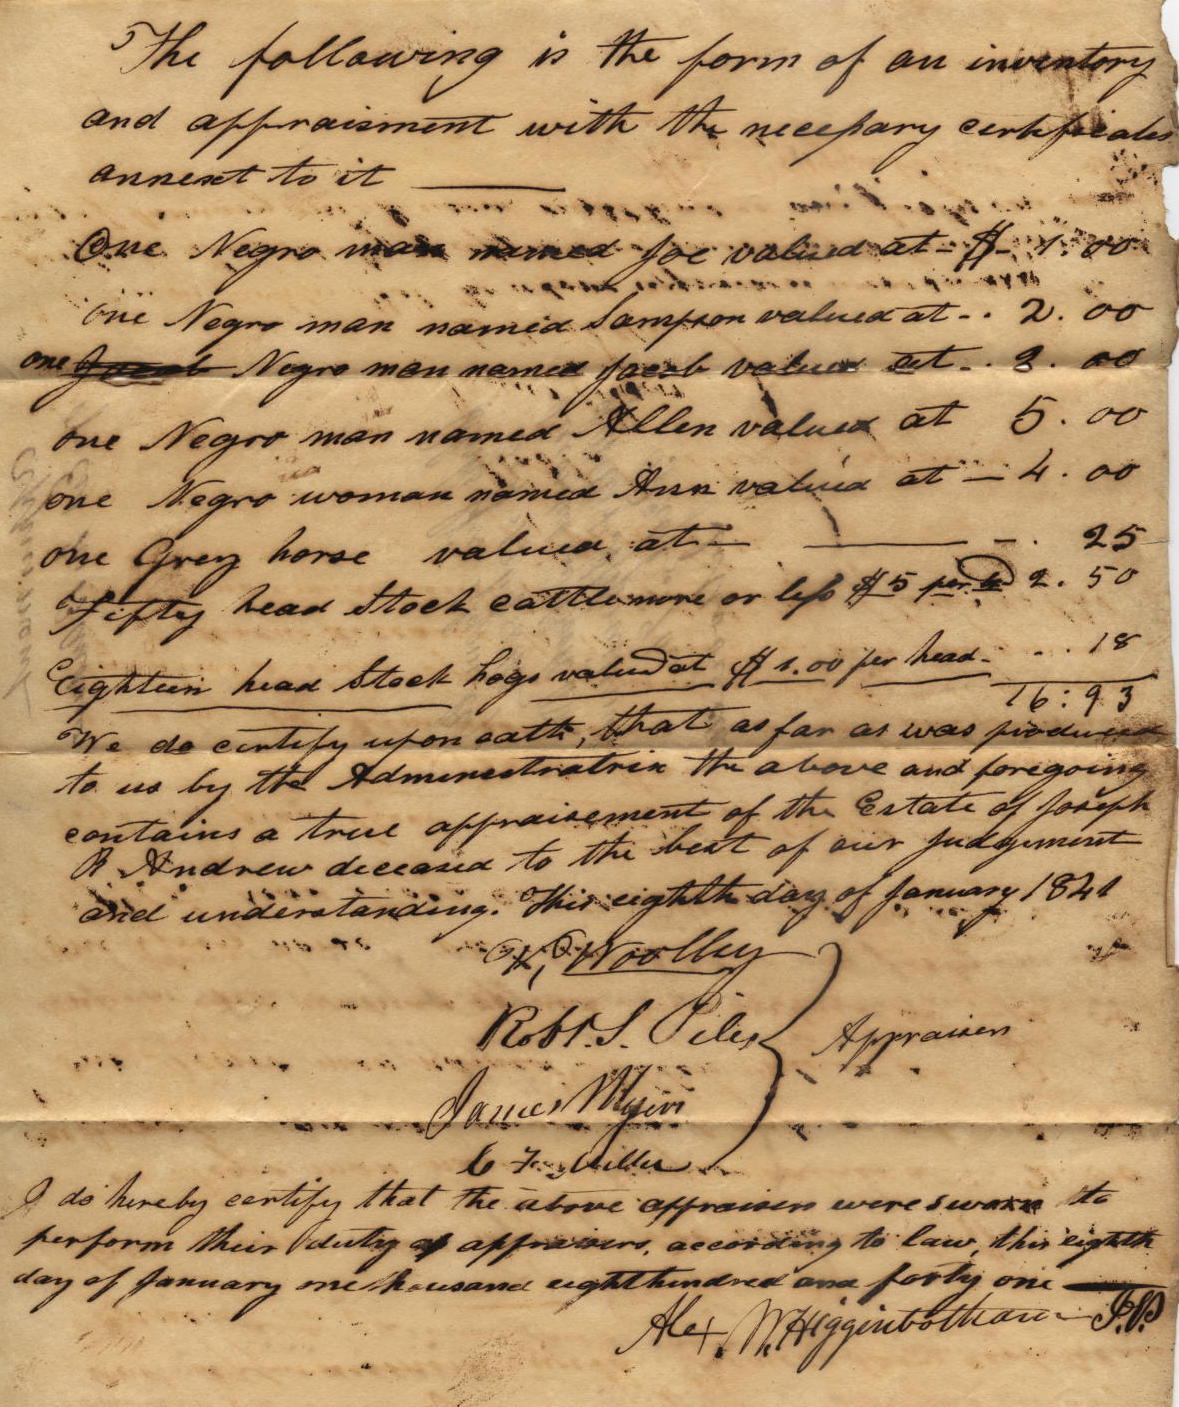 The following is the form of an inventory
and appraisment with the necessary certificates
annext to it
One Negro man named Joe valued at - $ - 1.00
one Negro man named Sampson valued at - . 2.00
one Jacob Negro man named Jacob valued at - . 2.00
one Negro man named Allen valued at 5.00
one Negro woman named Ann valued at - 4.00
one Grey horse valued at - - . 25
Fifty head Stock cattle more or less $5 per 2.50
Eighteen head Stock hogs valued at $1.00 per head - . . 18
16:93
We do certify upon oath, that as far as was produced
to us by the Administratrix the above and foregoing
contains a true appraisement of the Estate of Joseph
R Andrew deceased to the best of our Judgement
and understanding. This eighth day of January 1841
Woolley
Robt. S. Piles
Appraisers
James Myers
C F Miller
I do hereby certify that the above appraisers were sworn to
perform their duty as appraisers, according to law, this eighth
day of January one thousand eight hundred and forty one
Alex. W. Higginbotham J.P.